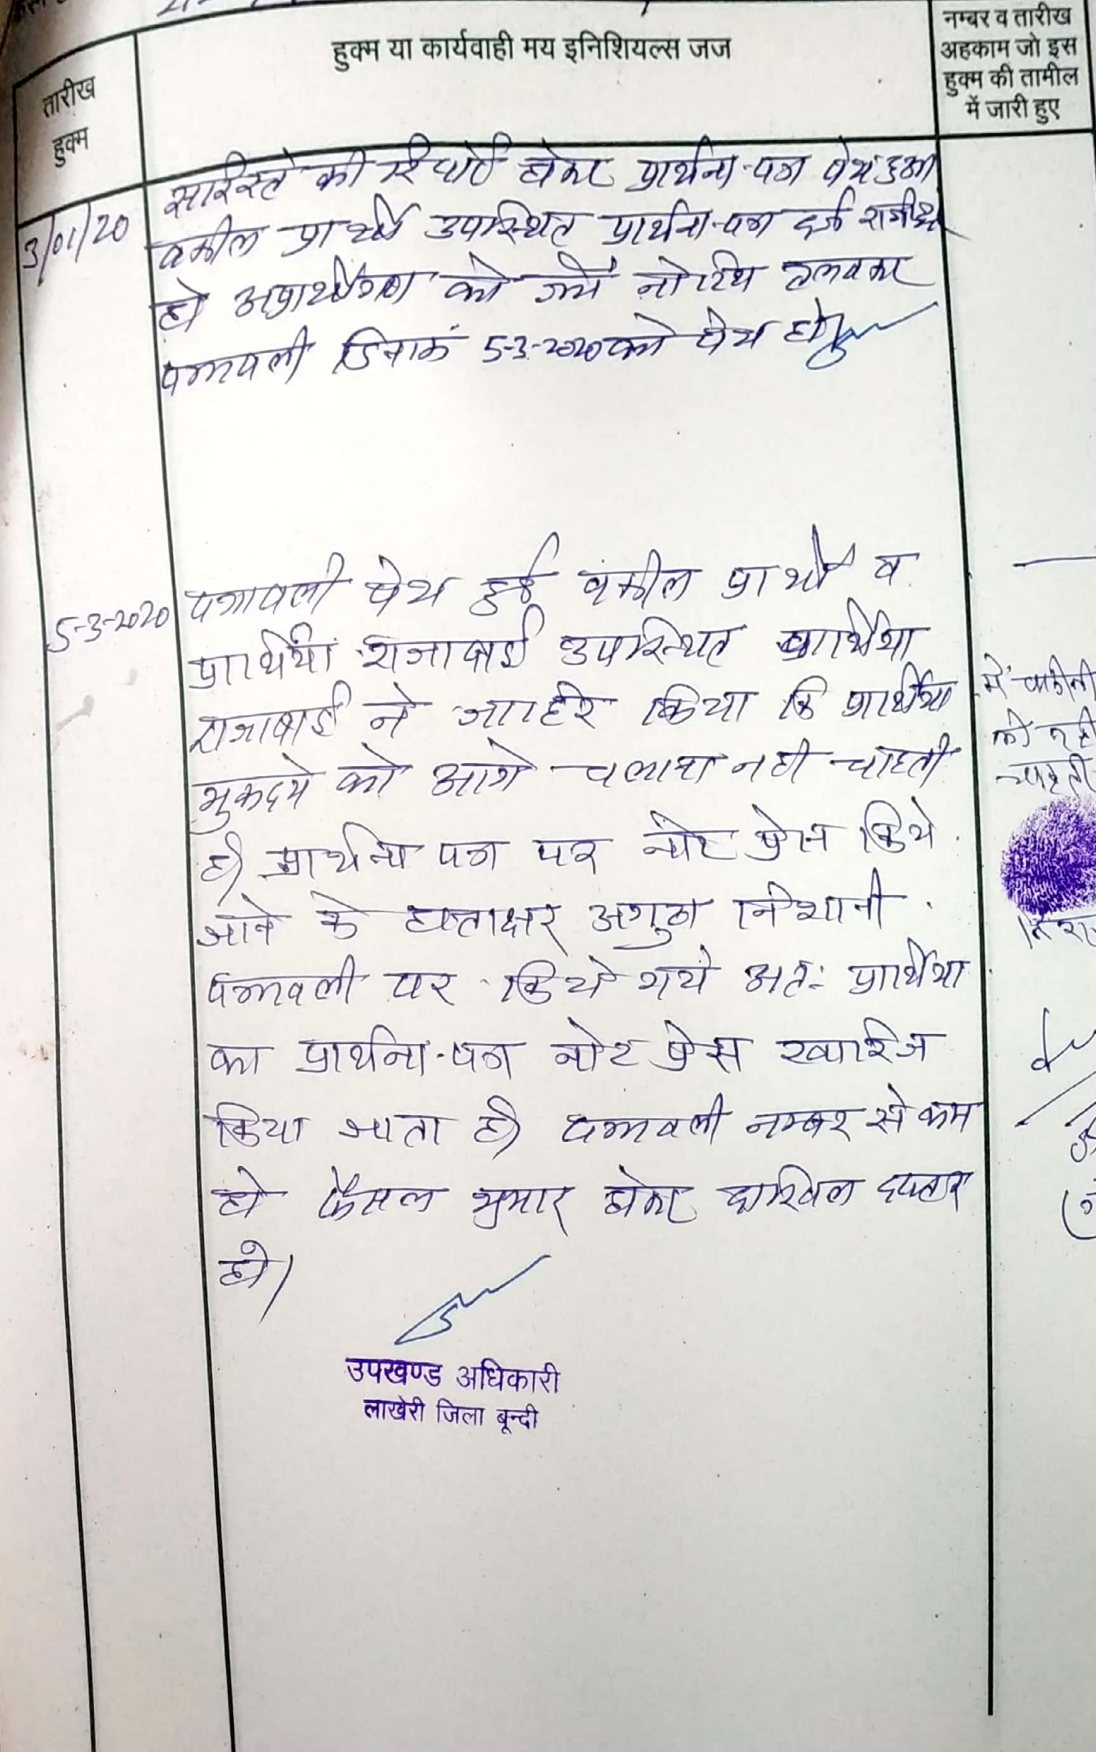 हुक्म या कार्यवाही मय इनिशियल्स जज
नम्बर व तारीख
अहकाम जो इस
हुक्म की तामील
में जारी हुए
तारीख
हुक्म
3/01/20
सरिस्ते की रिपोर्ट होकर प्रार्थना-पत्र पेश हुआ
वकील प्रार्थी उपस्थित प्रार्थना-पत्र दर्ज रजिस्टर
हो अप्रार्थीगण को जर्ये नोटिस तलबकर
पत्रावली दिनांक 5-3-2020 को पेश हो
5-3-2020
पत्रावली पेश हुई वकील प्रार्थी व
प्रार्थीया राजाबाई उपस्थित प्रार्थीया
राजाबाई ने जाहिर किया कि प्रार्थीया
मुकदमे को आगे चलाना नही चाहती
है। प्रार्थना पत्र पर नोट प्रेस किये
जाने के हस्ताक्षर अगुठा निशानी
पत्रावली पर किये गये अतः प्रार्थीया
का प्रार्थना-पत्र नोट प्रेस खारिज
किया जाता है। पत्रावली नम्बर से कम
हो फैसल शुमार होकर दाखिल दफ्तर
हो।
उपखण्ड अधिकारी
लाखेरी जिला बून्दी
में
चाहती